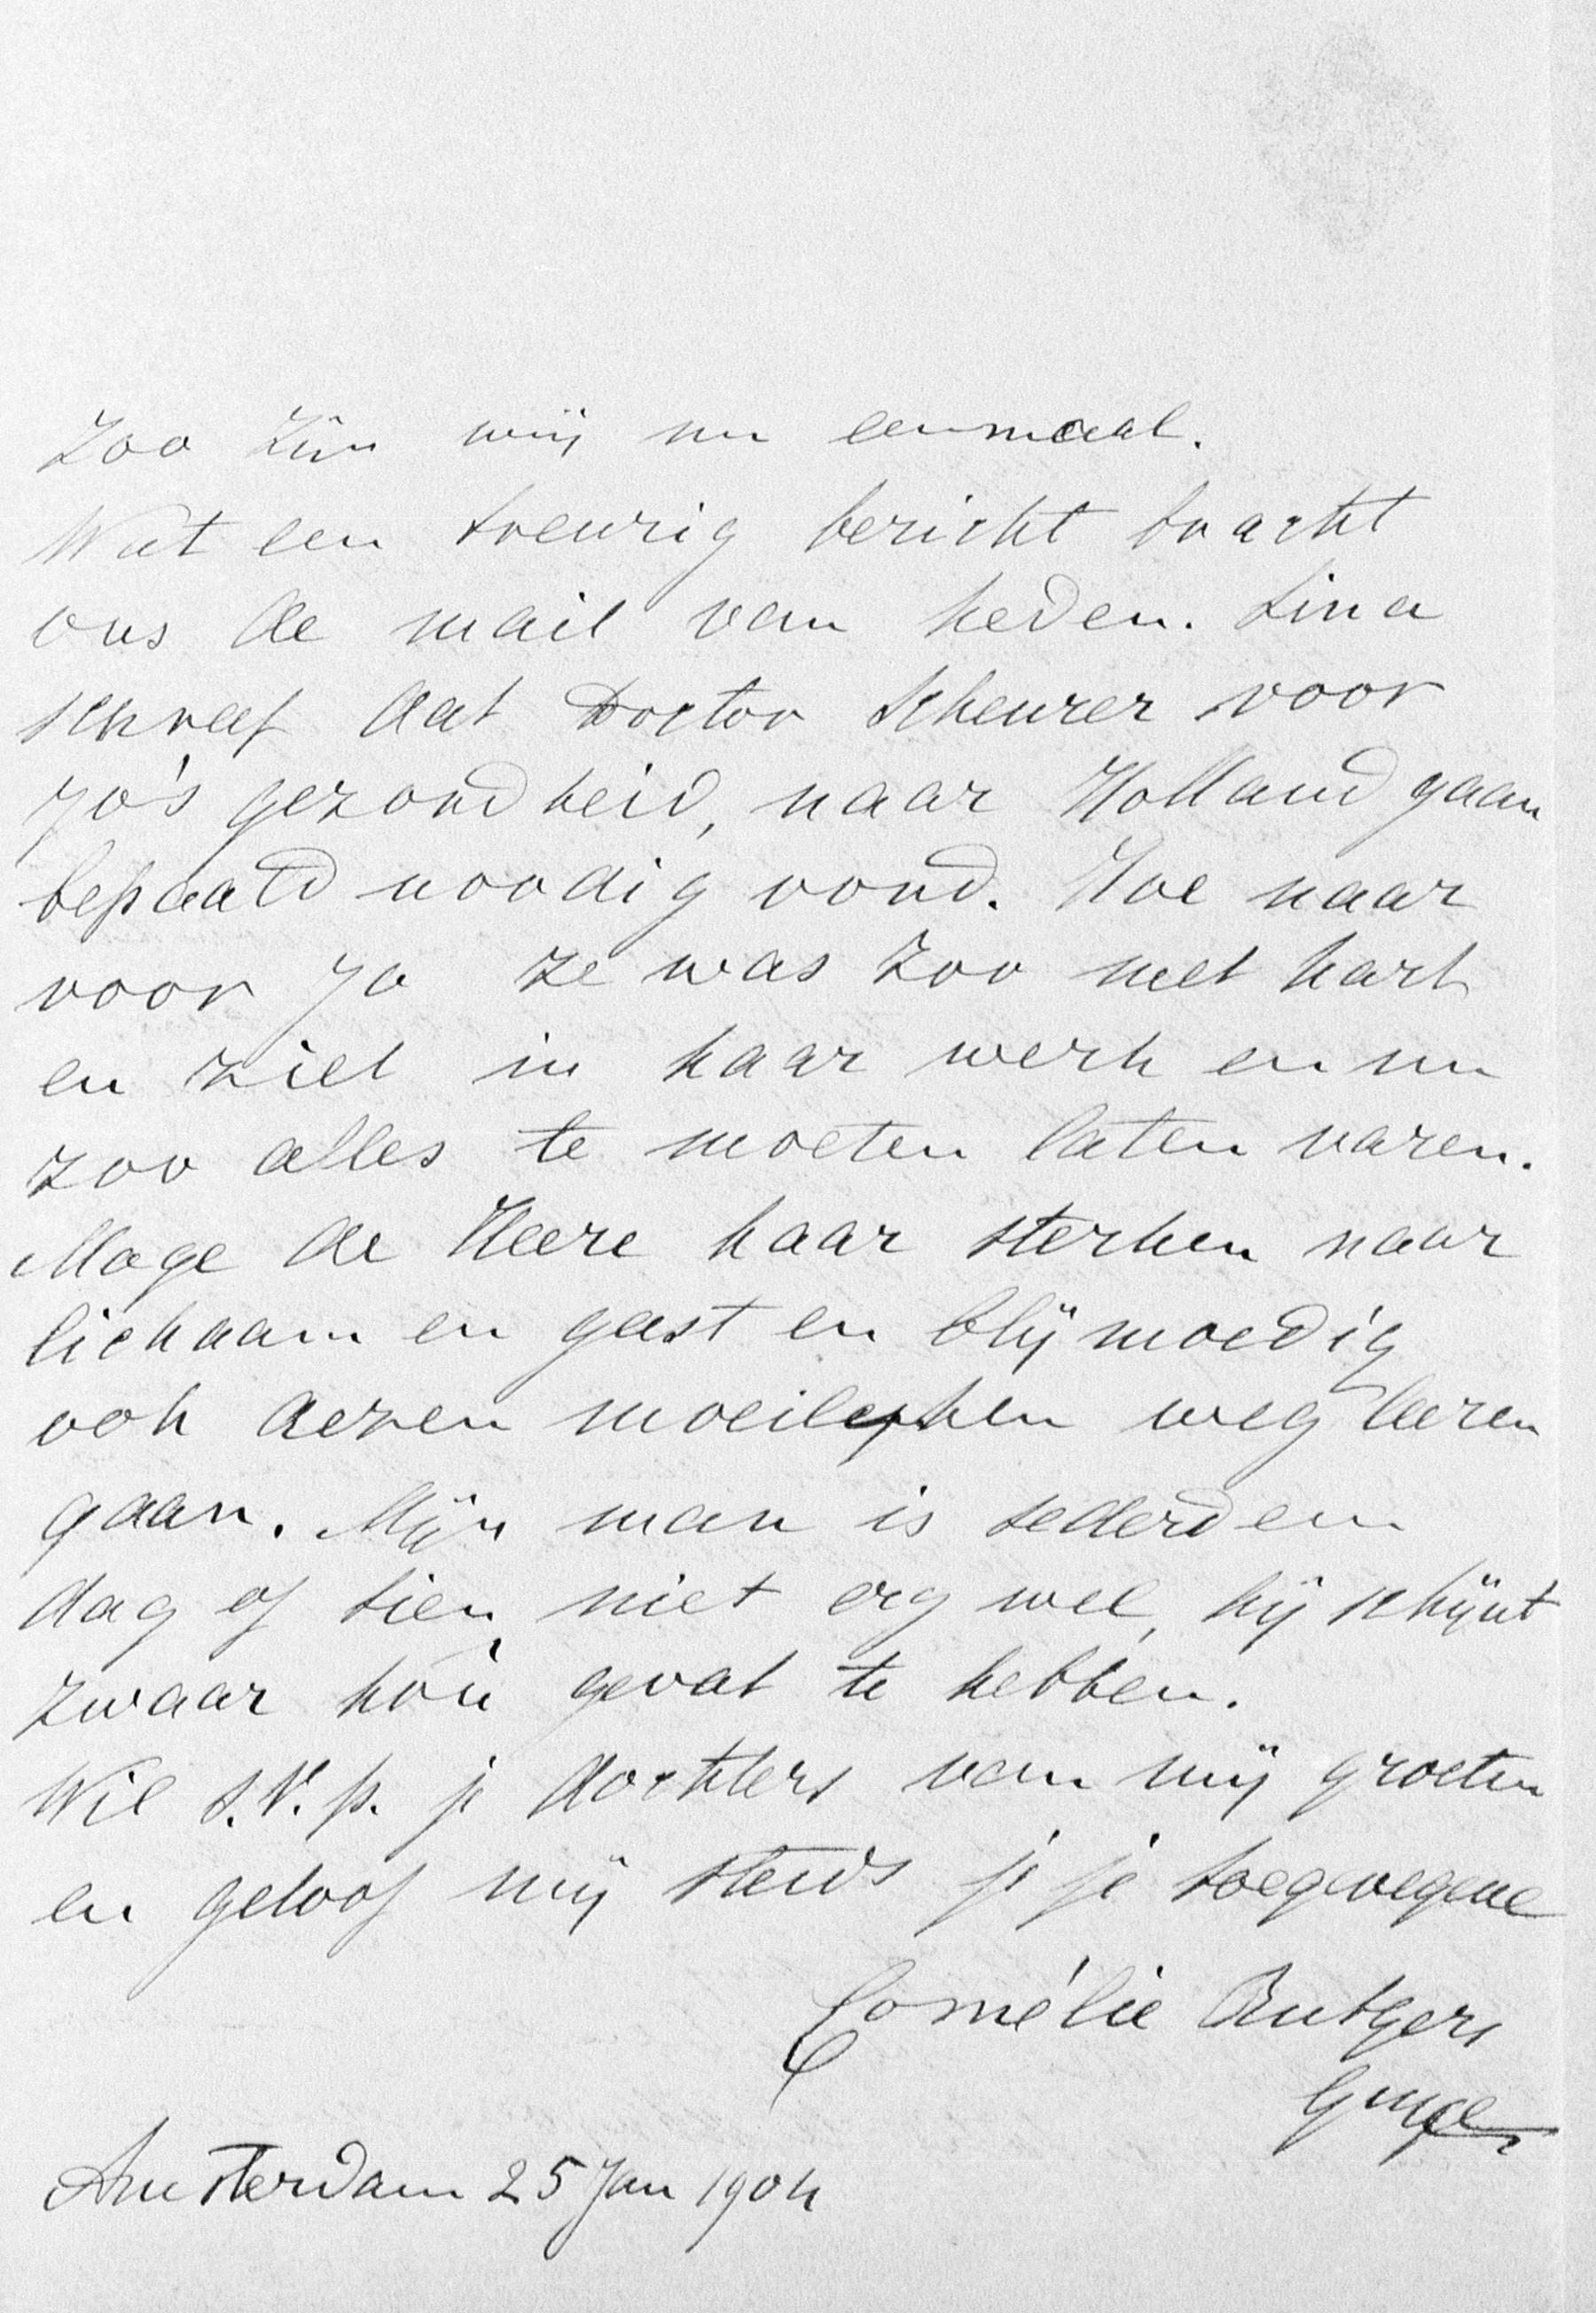 Zoo zijn wij nu eenmaal.
Wat een treurig bericht bracht
ons de mail van heden. Lina
schreef dat Doctor Scheurer voor
Jo's gezondheid, naar Holland gaan
bepaald noodig vond. Hoe naar
voor Jo ze was zoo met hart
en ziel in haar werk en nu
zoo alles te moeten laten varen.
Moge de Heere haar sterken naar
lichaam en geest en blijmoedig
ook dezen moeilijken weg leeren
gaan. Mijn man is sederd een
dag of tien niet erg wel, hij schijnt
zwaar kou gevat te hebben.
Wil s.v.p. je dochters van mij groeten
en geloof mij steeds je je toegenegene
Cornélie Rutgers
Amsterdam 25 Jan 1904